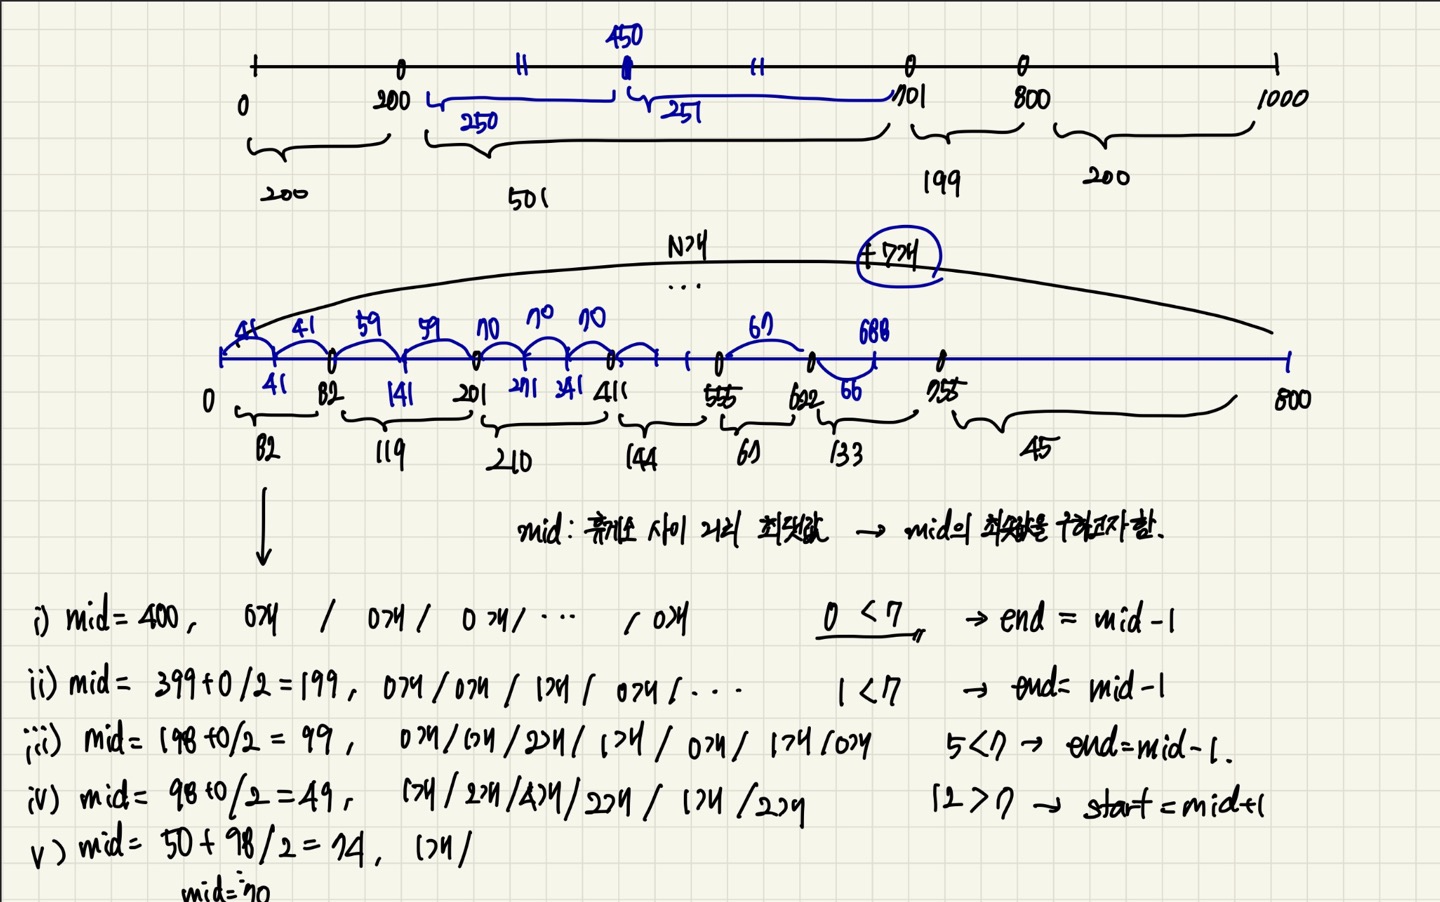 450
0 200 701 800 1000
250 251
200 501 199 200
N개 +7개
...
41 41 59 59 70 70 70 67 688
41 141 271 341 66
0 82 201 411 555 622 755 800
82 119 210 144 67 133 45
mid : 휴게소 사이 거리 최댓값 → mid의 최솟값을 구하고자 함.
i) mid = 400, 0개 / 0개 / 0개 / ... / 0개 0 < 7 → end = mid - 1
ii) mid = 399+0/2 = 199, 0개 / 0개 / 1개 / 0개 / ... 1 < 7 → end = mid - 1
iii) mid = 198+0/2 = 99, 0개 / 1개 / 2개 / 1개 / 0개 / 1개 / 0개 5 < 7 → end = mid - 1.
iv) mid = 98+0/2 = 49, 1개 / 2개 / 4개 / 2개 / 1개 / 2개 12 > 7 → start = mid+1
v) mid = 50+98/2 = 74, 1개 /
mid = 70